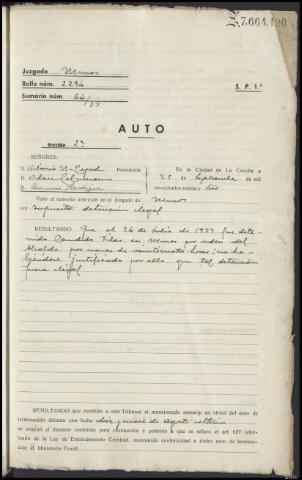 7.664.120
Juzgado Muros
Rollo núm. 2294
Sumario núm. 64/33
S. P. 1.ª
AUTO
Sección 2ª
SEÑORES:
D. Presidente
D.
D. Rodríguez
En la Ciudad de La Coruña a
25 de Septiembre de mil
novecientos treinta y tres
Visto el sumario instruido en el Juzgado de Muros
por supuesta detención ilegal
RESULTANDO Que el 26 de Julio de 1933 fue dete-
nido Candido Vilas en Muros por orden del
Alcalde por menos de veinticuatro horas, no ha-
biéndose justificado por ello que tal detención
fuera ilegal
RESULTANDO que remitido a este Tribunal el mencionado sumario en virtud del auto de
terminación dictado con fecha diez y nueve de agosto último
se evacuó el traslado conferido para instrucción y petición a que se refiere el art. 627 refor-
mado de la Ley de Enjuiciamiento Criminal, mostrando conformidad a dicho auto de termina-
ción el Ministerio Fiscal